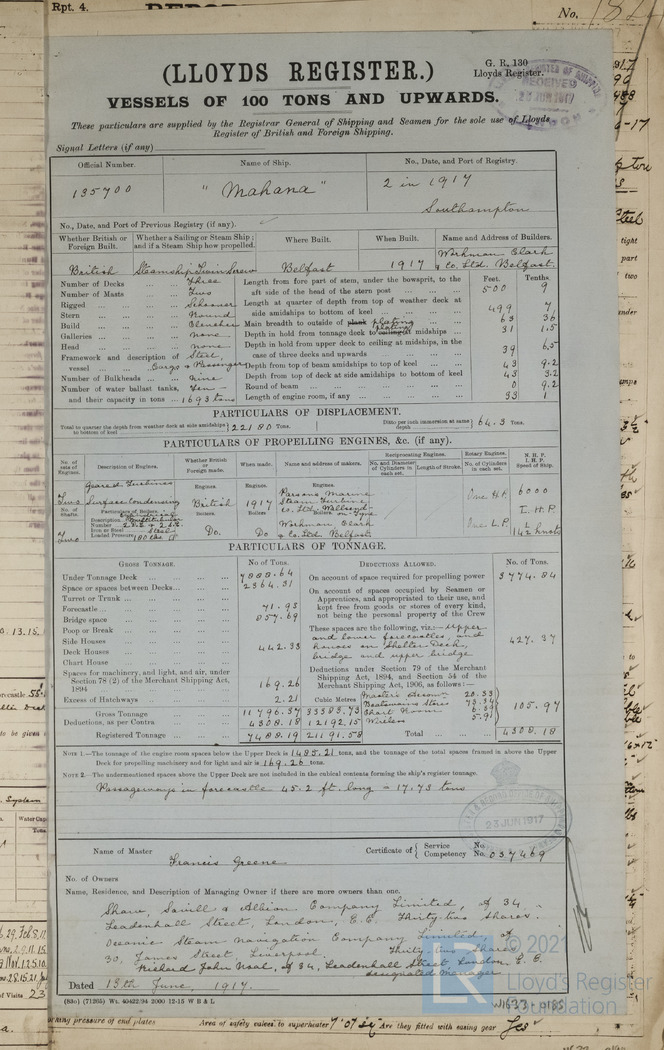 Rpt. 4.
No.
(LLOYDS REGISTER.)
G. R. 130
Lloyds Register.
VESSELS OF 100 TONS AND UPWARDS.
RECEIVED
23 JUN 1917
These particulars are supplied by the Registrar General of Shipping and Seamen for the sole use of Lloyds
Register of British and Foreign Shipping.
Signal Letters (if any)
Official Number. Name of Ship. No., Date, and Port of Registry.
135700 "Mahana" 2 in 1917
Southampton
No., Date, and Port of Previous Registry (if any).
Whether British or Foreign Built. Whether a Sailing or Steam Ship; and if a Steam Ship how propelled. Where Built. When Built. Name and Address of Builders.
British Steamship Twin Screw Belfast 1917 Workman Clark & Co. Ltd. Belfast.
Number of Decks ... Three
Number of Masts ... Two
Rigged ... Schooner
Stern ... Round
Build ... Clencher
Galleries ... none
Head ... none
Framework and description of vessel ... Steel Cargo & Passenger
Number of Bulkheads ... nine
Number of water ballast tanks, Ten
and their capacity in tons ... 1693 tons
Feet. Tenths
Length from fore part of stem, under the bowsprit, to the aft side of the head of the stern post ... 500 9
Length at quarter of depth from top of weather deck at side amidships to bottom of keel ... 499 7
Main breadth to outside of plank plating ... 63 36
Depth in hold from tonnage deck to ceiling plating at midships ... 31 1.5
Depth in hold from upper deck to ceiling at midships, in the case of three decks and upwards ... 39 6.5
Depth from top of beam amidships to top of keel ... 43 9.2
Depth from top of deck at side amidships to bottom of keel 43 3.2
Round of beam ... 0 9.2
Length of engine room, if any ... 33 1
PARTICULARS OF DISPLACEMENT.
Total to quarter the depth from weather deck at side amidships to bottom of keel 22180 Tons. Ditto per inch immersion at same depth 64.3 Tons.
PARTICULARS OF PROPELLING ENGINES, &c. (if any).
No. of sets of Engines. Description of Engines. Whether British or Foreign made. When made. Name and address of makers. Reciprocating Engines. Rotary Engines. N. H. P.
No. and Diameter of Cylinders in each set. Length of Stroke. No. of Cylinders in each set. I. H. P. Speed of Ship.
Engines. Engines. Engines.
Two Geared Turbines Surface Condensing British 1917 Parsons Marine Steam Turbine Co. Ltd. Wallsend on Tyne One H.P. 6000
No. of Shafts. Particulars of Boilers. Boilers. Boilers. Boilers. I. H. P.
Description Multitubular
Number
Iron or Steel Steel
Loaded Pressure 180 lbs
Two Do. Do Workman Clark & Co. Ltd. Belfast One L.P. 14½ knots
PARTICULARS OF TONNAGE.
GROSS TONNAGE. No. of Tons. DEDUCTIONS ALLOWED. No. of Tons.
Under Tonnage Deck ... 7888.64
Space or spaces between Decks ... 2364.31
Turret or Trunk ...
Forecastle ... 71.93
Bridge space ... 857.69
Poop or Break ...
Side Houses ...
Deck Houses ... 442.33
Chart House
Spaces for machinery, and light, and air, under Section 78 (2) of the Merchant Shipping Act, 1894 169.26
Excess of Hatchways ... 2.21
Cubic Metres
Gross Tonnage ... 11796.37 33383.73
Deductions, as per Contra ... 4308.18 12192.15
Registered Tonnage ... 7488.19 21191.58
On account of space required for propelling power 3774.84
On account of spaces occupied by Seamen or Apprentices, and appropriated to their use, and kept free from goods or stores of every kind, not being the personal property of the Crew
These spaces are the following, viz.:— Upper and lower forecastles, and houses on Shelter Deck, bridge and upper bridge 427.37
Deductions under Section 79 of the Merchant Shipping Act, 1894, and Section 54 of the Merchant Shipping Act, 1906, as follows:—
Master's accom. 20.33
Boatswains Stores 73.34
Chart Room 6.39
Wireless 5.91
105.97
Total ... 4308.18
NOTE 1.—The tonnage of the engine room spaces below the Upper Deck is 1485.21 tons, and the tonnage of the total spaces framed in above the Upper
Deck for propelling machinery and for light and air is 169.26 tons.
NOTE 2.—The undermentioned spaces above the Upper Deck are not included in the cubical contents forming the ship's register tonnage.
Passageways in forecastle 45.2 ft. long = 17.73 tons
23 JUN 1917
Name of Master Francis Greene Certificate of Service No. Competency No. 037469
No. of Owners
Name, Residence, and Description of Managing Owner if there are more owners than one.
Shaw, Savill & Albion Company Limited, of 34
Leadenhall Street, London, E.C. Thirty-two Shares.
Oceanic Steam Navigation Company Limited of
30, James Street Liverpool, Thirty two Shares
Richard John Noal, of 34, Leadenhall Street London, E.C.
designated Manager
Dated 13th June, 1917.
(88c) (71265) Wt. 40422/94 2000 12-15 W B & L
W1633-0185
© 2021
Lloyd's Register
Foundation
LR
Working pressure of end plates Area of safety valves to superheater 7.07 sq Are they fitted with easing gear Yes